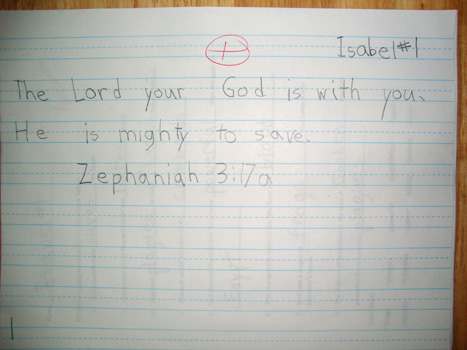 +
Isabel #1
The Lord your God is with you.
He is mighty to save.
Zephaniah 3:17a